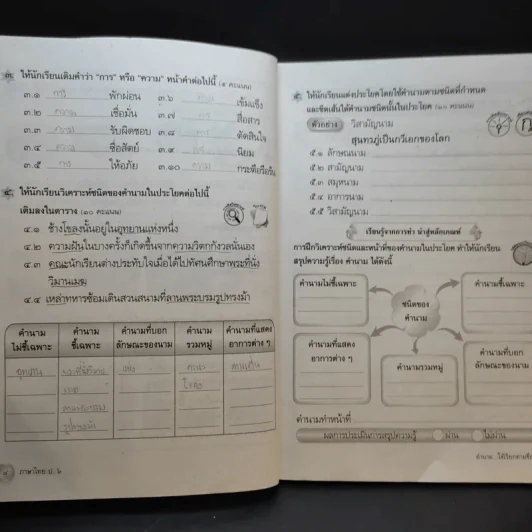 ๓. ให้นักเรียนเติมคำว่า "การ" หรือ "ความ" หน้าคำต่อไปนี้ (๕ คะแนน)
๓.๑ การ พักผ่อน ๓.๖ เข้มแข็ง
๓.๒ ความ เชื่อมั่น ๓.๗ สื่อสาร
๓.๓ ความ รับผิดชอบ ๓.๘ ตัดสินใจ
๓.๔ ความ ซื่อสัตย์ ๓.๙ นิยม
๓.๕ การ ให้อภัย ๓.๑๐ ความ กระตือรือร้น
๔. ให้นักเรียนวิเคราะห์ชนิดของคำนามในประโยคต่อไปนี้
เติมลงในตาราง (๑๐ คะแนน)
๔.๑ ช้างโขลงนั้นอยู่ในอุทยานแห่งหนึ่ง
๔.๒ ความฝันในบางครั้งก็เกิดขึ้นจากความวิตกกังวลนั่นเอง
๔.๓ คณะนักเรียนต่างประทับใจเมื่อได้ไปทัศนศึกษาพระที่นั่ง
วิมานเมฆ
๔.๔ เหล่าทหารซ้อมเดินสวนสนามที่ลานพระบรมรูปทรงม้า
คำนาม คำนาม คำนามที่บอก คำนาม คำนามที่แสดง
ไม่ชี้เฉพาะ ชี้เฉพาะ ลักษณะของนาม รวมหมู่ อาการต่าง ๆ
อุทยาน คณะ ความฝัน
โขลง
ภาษาไทย ป. ๖
๕. ให้นักเรียนแต่งประโยคโดยใช้คำนามตามชนิดที่กำหนด
และขีดเส้นใต้คำนามชนิดนั้นในประโยค (๑๐ คะแนน)
ตัวอย่าง วิสามัญนาม
สุนทรภู่เป็นกวีเอกของโลก
๕.๑ ลักษณนาม
๕.๒ สามัญนาม
๕.๓ สมุหนาม
๕.๔ อาการนาม
๕.๕ วิสามัญนาม
เรียนรู้จากการทำ นำสู่หลักเกณฑ์
การฝึกวิเคราะห์ชนิดและหน้าที่ของคำนามในประโยค ทำให้นักเรียน
สรุปความรู้เรื่อง คำนาม ได้ดังนี้
คำนามไม่ชี้เฉพาะ คำนามชี้เฉพาะ
ชนิดของ
คำนาม
คำนามที่แสดง
อาการต่าง ๆ
คำนามรวมหมู่
คำนามที่บอก
ลักษณะของนาม
คำนามทำหน้าที่
ผลการประเมินการสรุปความรู้ ผ่าน ไม่ผ่าน